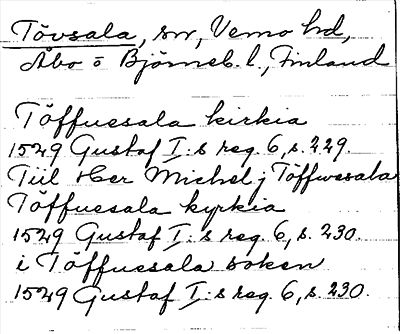 Tövsala, sn, Vemo hd,
Åbo o Björneb. l., Finland
Töffuesala kirkia
1529 Gustaf I:s reg. 6, s. 229.
Tiil Her Michel j Töffwesala
Töffuesala kyrkia
1529 Gustaf I:s reg. 6, s. 230.
i Töffuesala soken
1529 Gustaf I:s reg. 6, s. 230.